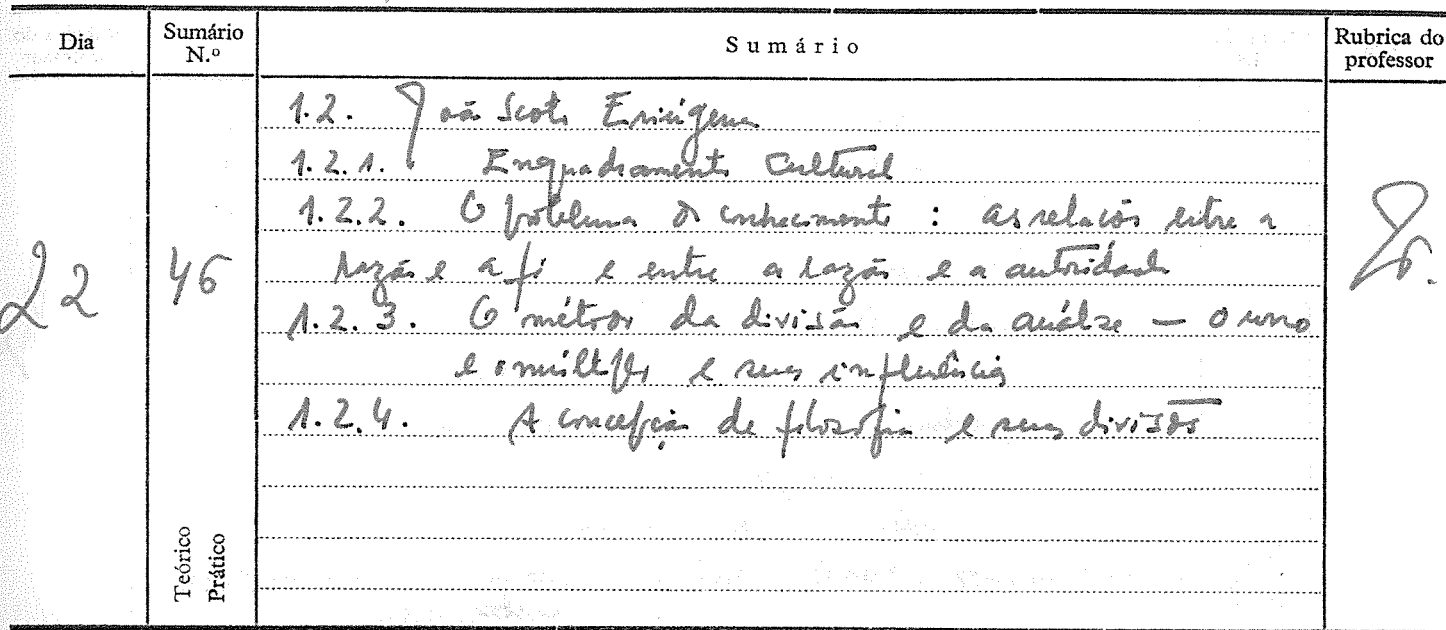 Dia
Sumário N.º
Sumário
Rubrica do professor
22
46
1.2. João Scoto Eriúgena
1.2.1. Enquadramento Cultural
1.2.2. O problema do conhecimento : as relações entre a
razão e a fé e entre a razão e a autoridade
1.2.3. O método da divisão e da análise — o uno
e o múltiplo e suas influências
1.2.4. A concepção de filosofia e suas divisões
Teórico
Prático